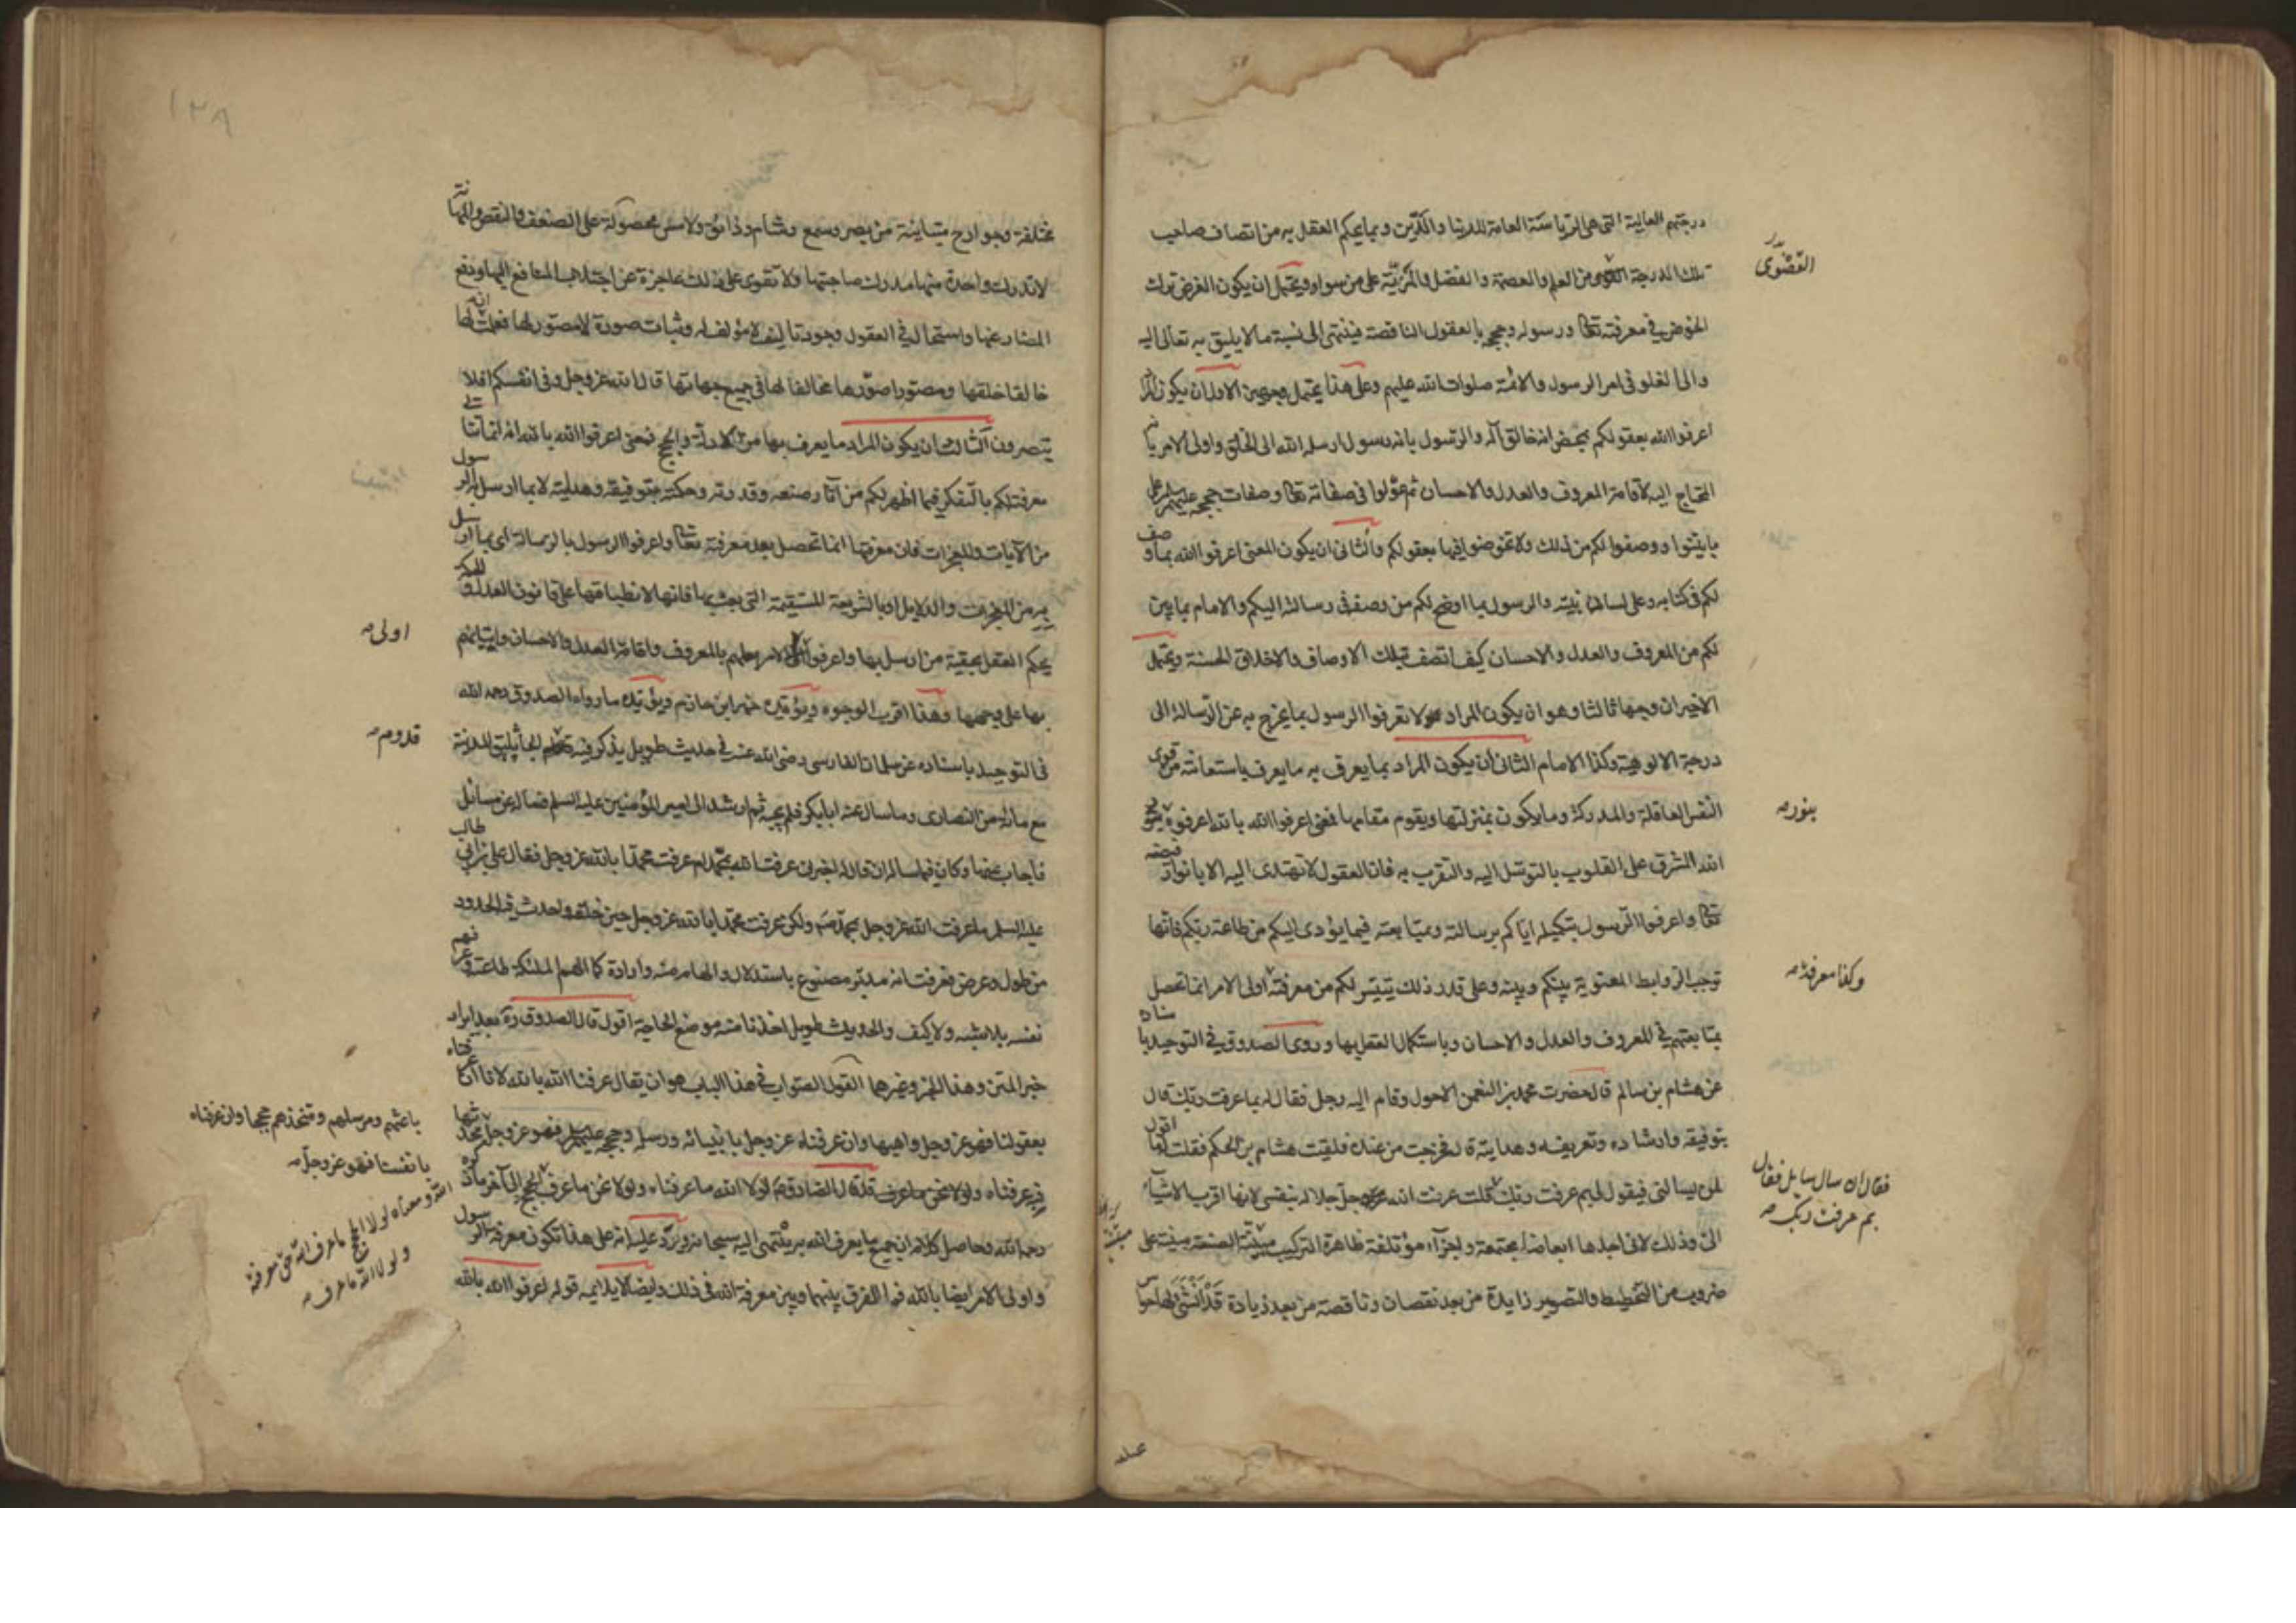 درجتهم العالية التي هي الرياسة العامة للدنيا والدّين وبما يحكم العقل به من اتصاف صاحب
تلك الدرجة القصوى من العلم والعصمة والفضل والمزيّة على من سواه ويحتمل ان يكون الغرض ترك
الخوض في معرفته تعا ورسوله وحججه بالعقول الناقصة فينتهي الى نسبة ما لا يليق به تعالى اليه
والى الغلو في امر الرسول والائمة صلوات الله عليهم وعلى هذا يحتمل وجهين الاول ان يكون المراد
اعرفوا الله بعقولكم بمحض انه خالق اله والرسول بانه رسول ارسله الله الى الخلق واولي الامر بانه
المحتاج اليه لاقامة المعروف والعدل والاحسان ثم عولوا في صفاته تعا وصفات حججه عليهم السلم على
ما بيّنوا ووصفوا لكم من ذلك ولا تخوضوا فيها بعقولكم والثاني ان يكون المعنى اعرفوا الله بما وصف
لكم في كتابه وعلى لسان نبيّه والرسول بما اوضح لكم من وصفه في رسالته اليكم والامام بما بين
لكم من المعروف والعدل والاحسان كيف اتصف بتلك الاوصاف والاخلاق الحسنة ويحتمل
الاخيران وجها ثالثا وهو ان يكون المراد لا تعرفوا الرسول بما يخرج به عن الرسالة الى
درجة الالوهية وكذا الامام الثاني ان يكون المراد بما يعرف به ما يعرف باستعانته من قوى
النفس العاقلة والمدركة وما يكون بمنزلتها ويقوم مقامها فمعنى اعرفوا الله بالله اعرفوه بنور
الله المشرق على القلوب بالتوسل اليه والتقرب به فان العقول لا تهتدي اليه الا بانوار فيضه
تعا واعرفوا الرّسول بتكميله اياكم برسالته وبمتابعته فيما يؤدي اليكم من طاعة ربكم فانها
توجب الروابط المعنوية بينكم وبينه وعلى قدر ذلك يتيسر لكم من معرفته وكذا معرفة اولي الامر انما تحصل
بمتابعتهم في المعروف والعدل والاحسان وباستكمال العقل بها وروى الصدوق في التوحيد باسناده
عن هشام بن سالم قال حضرت محمد بن النعمن الاحول وقام اليه رجل فقال له بما عرفت ربك قال
بتوفيقه وارشاده وتعريفه وهدايته قال فخرجت من عنده فلقيت هشام بن الحكم فقلت له ما اقول
لمن يسالني فيقول لي بم عرفت ربك فقال ان سال سايل فقال بم عرفت ربك قلت عرفت الله جل جلاله بنفسي لانها اقرب الاشياء
اليّ وذلك لاني اجدها ابعاضا مجتمعة واجزاء مؤتلفة ظاهرة التركيب متبيّنة الصنعة مبنية على
ضروب من التخطيط والتصوير زايدة من بعد نقصان وناقصة من بعد زيادة قد انشئ لها حواس
القصوى
بنور
وكذا معرفة
فقال ان سال سايل فقال
بم عرفت ربك
١٢٨
مختلفة وجوارح متباينة من بصر وسمع وشام وذائق ولامس مجبولة على الضعف والنقص والمهانة
لا تدرك واحدة منها مدرك صاحبتها ولا تقوى على ذلك عاجزة عن اجتلاب المنافع اليها ودفع
المضار عنها واستحال في العقول وجود تاليف لا مؤلف له وثبات صورة لا مصور لها فعلمت ان لها
خالقا خلقها ومصورا صوّرها مخالفا لها في جميع جهاتها قال الله عز وجل وفي انفسكم افلا
تبصرون الثالث ان يكون المراد ما يعرف بها من الادلة والحجج فمعنى اعرفوا الله بالله انه انما تتاتى
معرفته لكم بالتفكر فيما اظهر لكم من آثار صنعه وقدرته وحكمته بتوفيقه وهدايته لا بما ارسل به الرسول
من الآيات والمعجزات فان معرفتها انما تحصل بعد معرفته تعا واعرفوا الرسول بالرسالة اي بما ارسل
به من المعجزات والدلايل او بالشريعة المستقيمة التي بعث بها فانها لانطباقها على قانون العدل والحكمة
يحكم العقل بحقية من ارسل بها واعرفوا اولي الامر بعلمهم بالمعروف واقامة العدل والاحسان واتيانهم
بها على وجهها وهذا اقرب الوجوه ويؤيده خبر ابن حازم ويؤيده ما رواه الصدوق رحمه الله
في التوحيد باسناده عن سلمان الفارسي رضي الله عنه في حديث طويل يذكر فيه قدوم الجاثليق المدينة
مع مائة من النصارى وما سال عنه ابا بكر فلم يجبه ثم ارشد الى امير المؤمنين عليه السلم فساله عن مسائل
فاجاب عنها وكان فيما ساله ان قال له اخبرني عرفت الله بمحمد ام عرفت محمدا بالله عز وجل فقال علي بن ابي طالب
عليه السلم ما عرفت الله عز وجل بمحمد ص ولكن عرفت محمدا بالله عز وجل حين خلقه واحدث فيه الحدود
من طول وعرض فعرفت انه مدبّر مصنوع باستدلال والهام منه وارادة كما الهم الملئكة طاعته وعرفهم
نفسه بلا شبه ولا كيف والحديث طويل اخذنا منه موضع الحاجة اقول قال الصدوق ره بعد ايراد
خبر المتن وهذا الخبر وغيرها القول الصواب في هذا الباب هو ان يقال عرفنا الله بالله لانا ان عرفناه
بعقولنا فهو عز وجل واهبها وان عرفناه عز وجل بانبيائه ورسله وحججه عليهم السلم فهو عز وجل
به عرفناه ولولا نحن ما عرف قد قال الصادق ع لولا الله ما عرفناه ولولا نحن ما عرف الى آخر ما ذكره
رحمه الله وحاصل كلامه ان جميع ما يعرف الله به ينتهي اليه سبحانه ويرد عليه انه على هذا تكون معرفة الرسول
واولي الامر ايضا بالله فما الفرق بينهما وبين معرفة الله في ذلك وايضا لا يلايمه قوله اعرفوا الله بالله
اولى
قدوم
باعثهم ومرسلهم ومتخذهم حججا وان عرفناه
بانفسنا فهو عز وجل
الله ومعناه لولا الحجج ما عرف الله حق معرفته
ولولا الله ما عرف